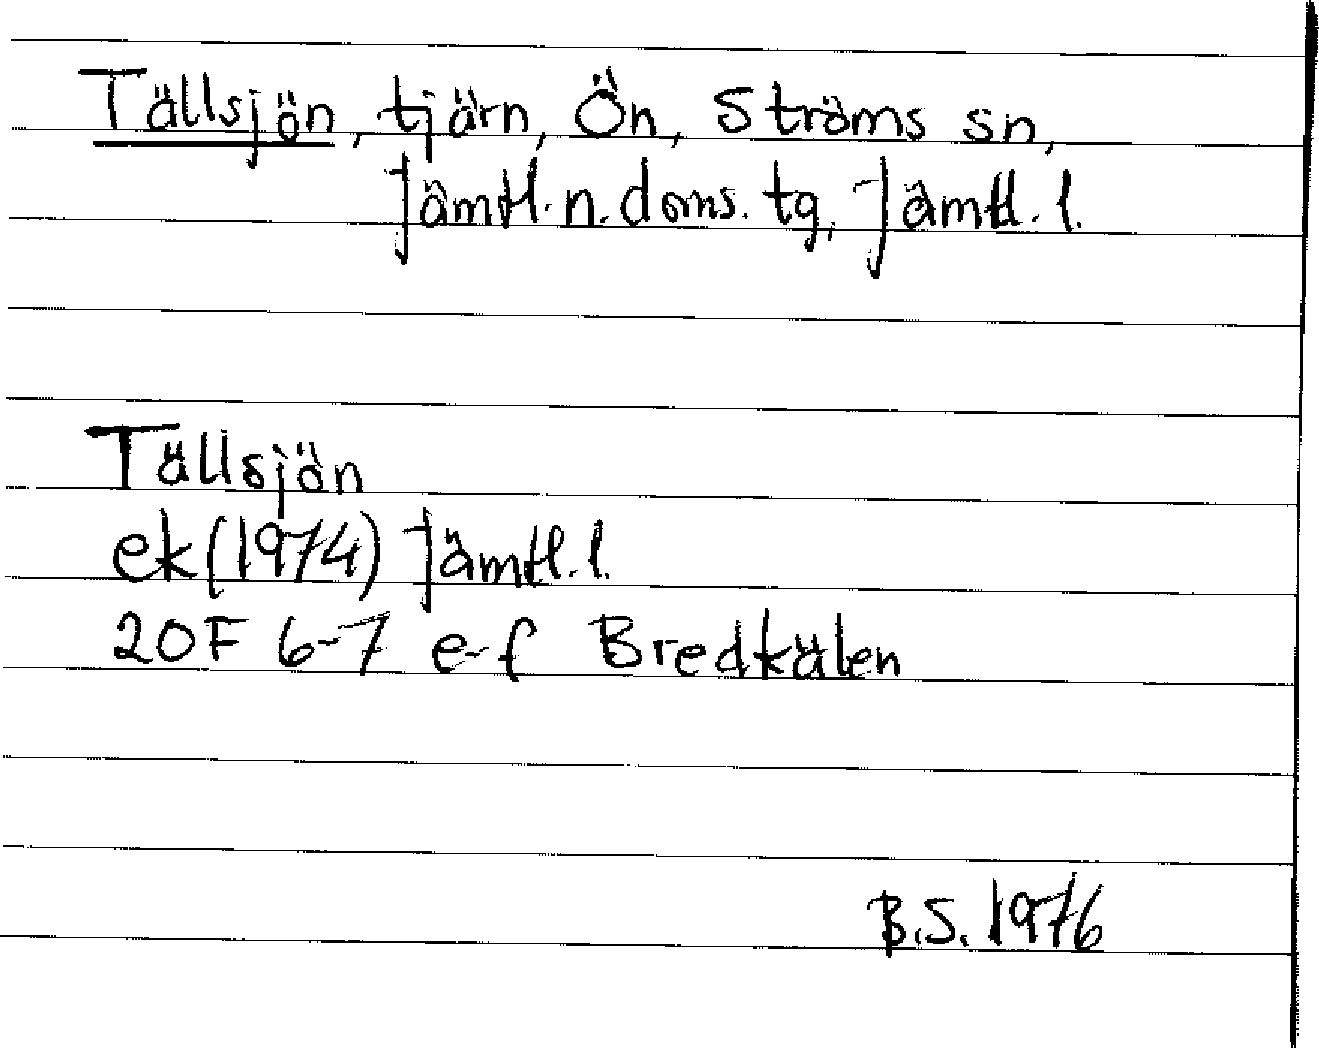 Tällsjön, tjärn, Ön, Ströms sn,
Jämtl. n. doms. tg, Jämtl. l.
Tällsjön
ek (1974) Jämtl. l.
20F 6-7 e-f Bredkälen
B.S. 1976